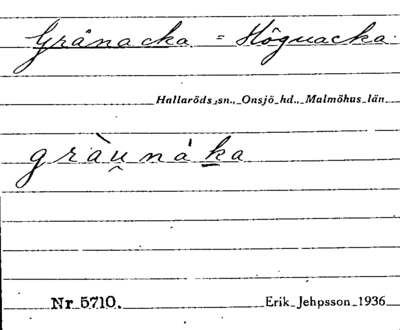 Grånacka = Högnacka.
Hallaröds sn., Onsjö hd., Malmöhus län
gràu̯nàka
Nr 5710.
Erik Jehpsson 1936